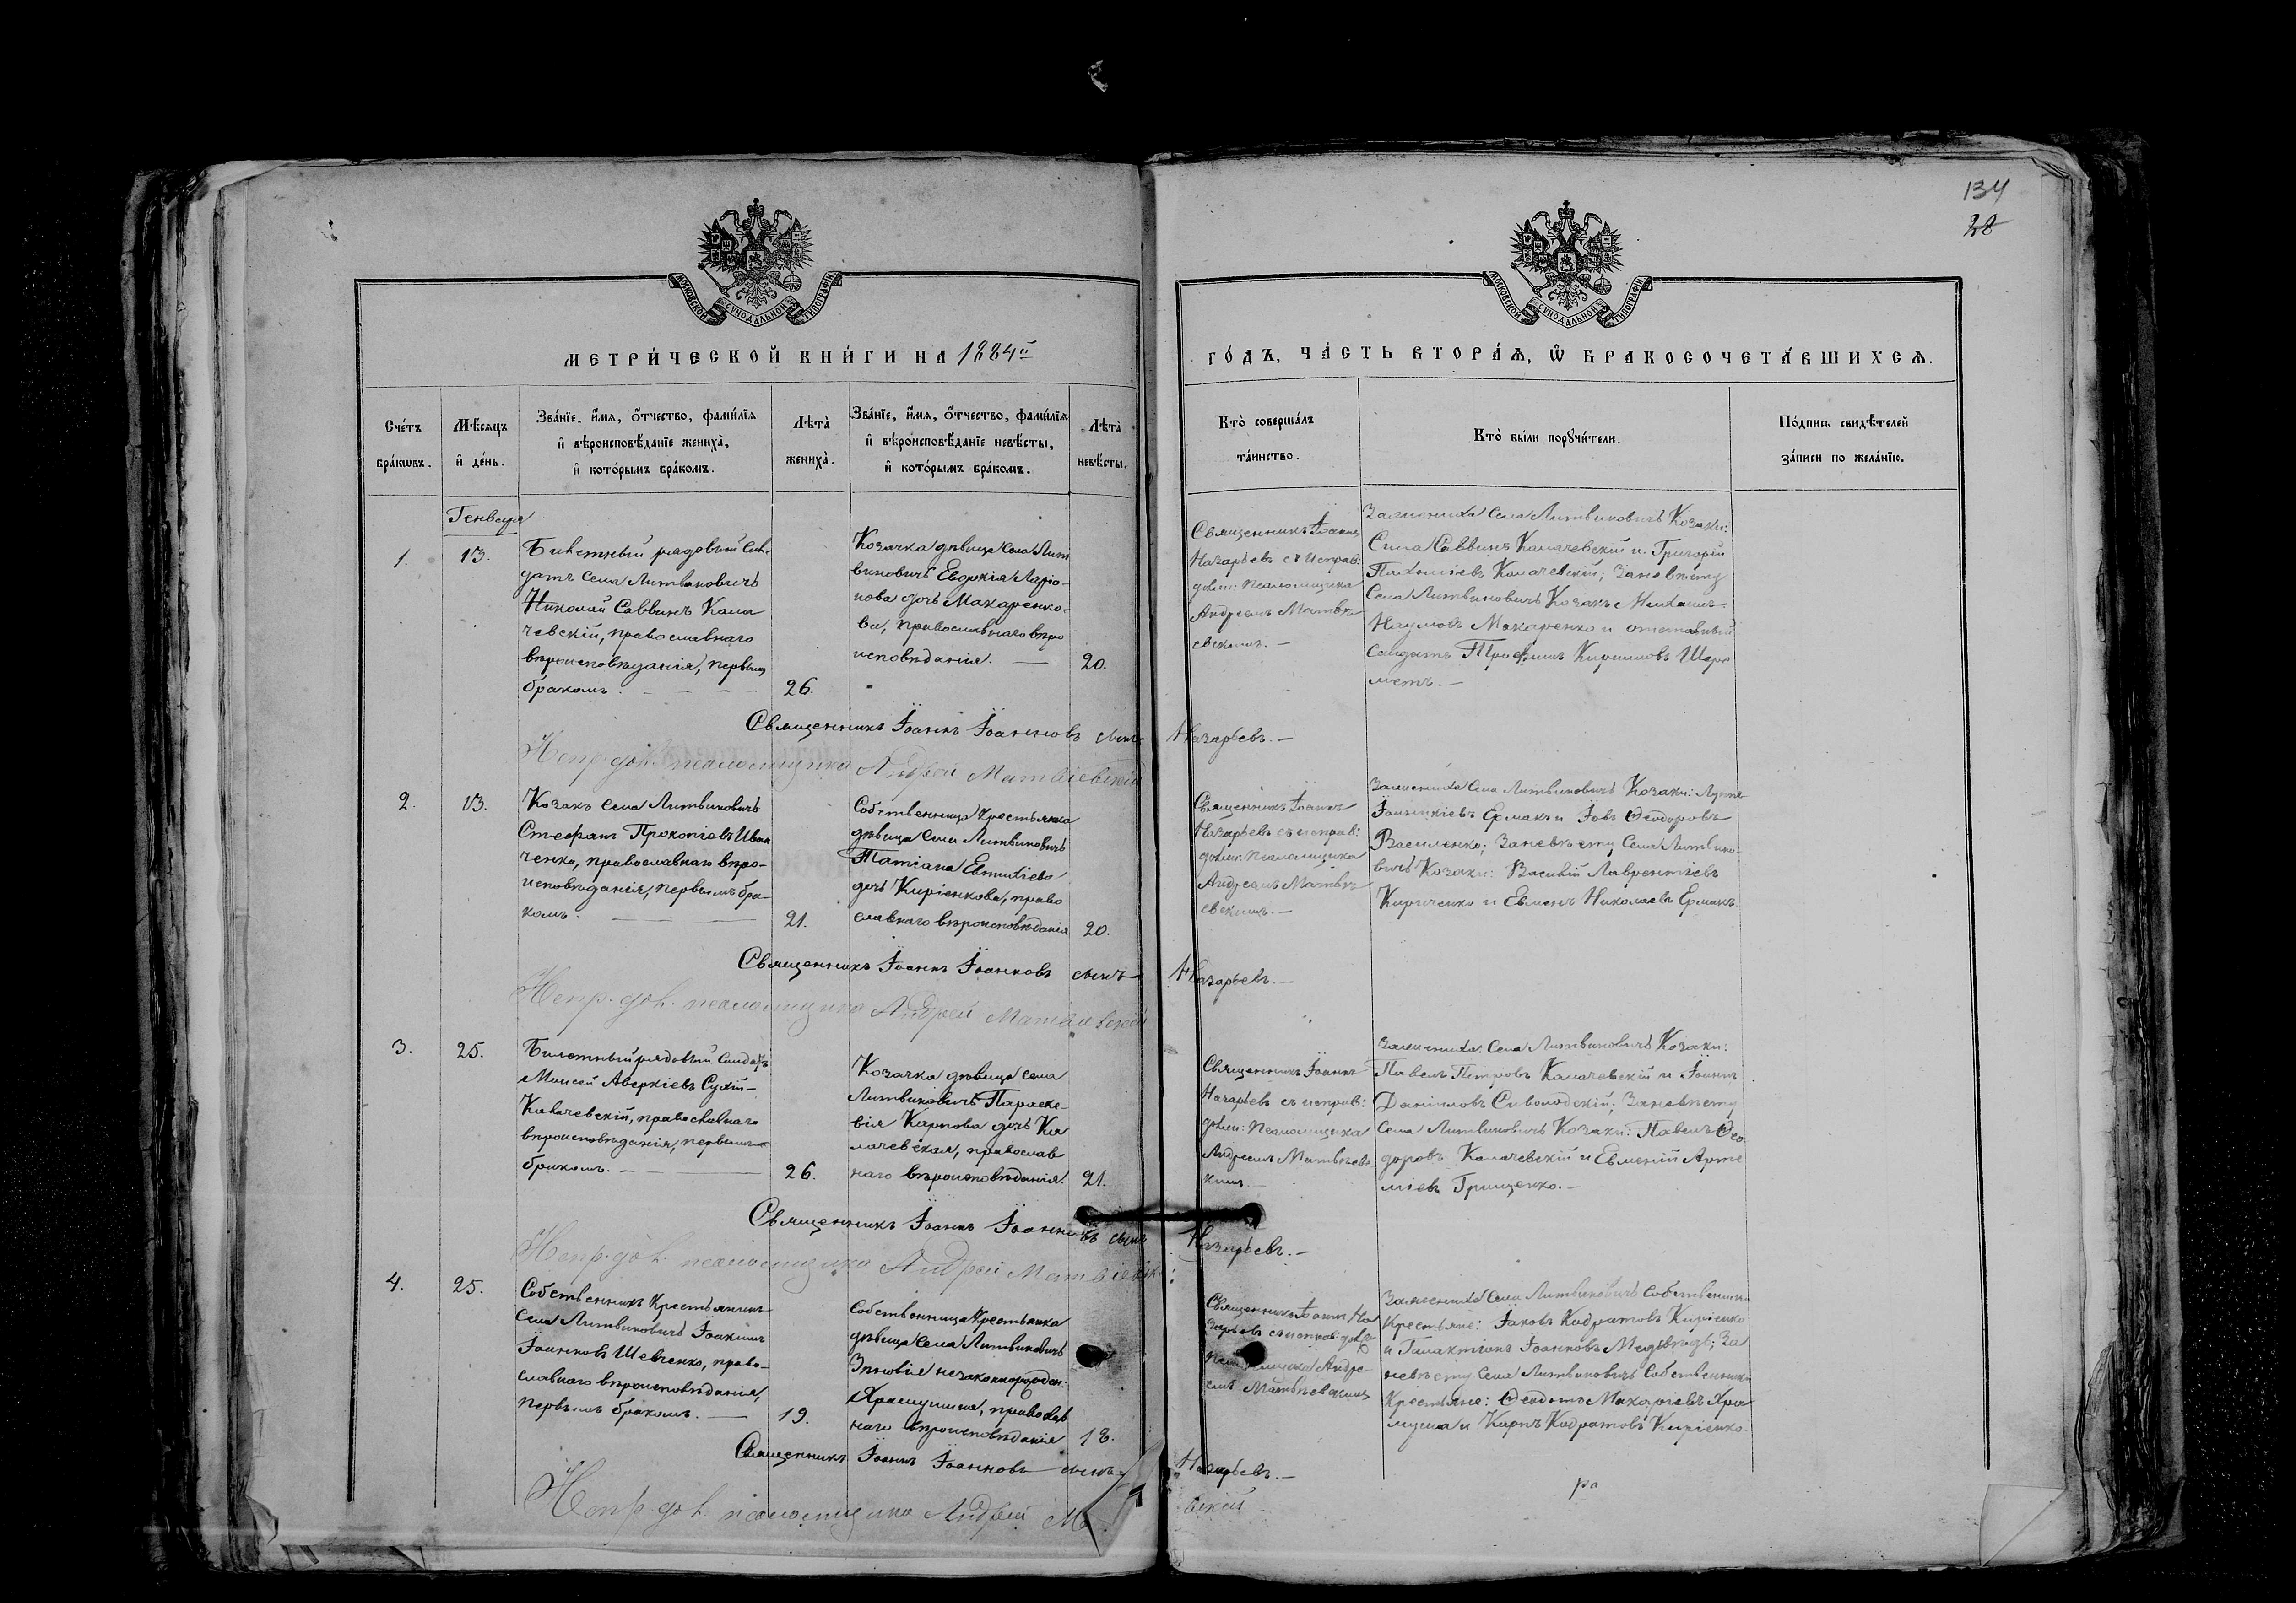 134
28
МОСКОВСКОЙ СѴНОДАЛЬНОЙ ТИПОГРАФІИ
МОСКОВСКОЙ СѴНОДАЛЬНОЙ ТИПОГРАФІИ
МЕТРИ́ЧЕСКОЙ КНИ́ГИ НА 1884й
ГО́ДЪ, ЧА́СТЬ ВТОРА́Ѧ, Ѽ БРАКОСОЧЕТА́ВШИХСѦ.
Сче́тъ
бра́кѡвъ.
Мѣ́сѧцъ
и҆ де́нь.
Зва́нїе, и҆́мѧ, о҆́тчество, фами́лїѧ
и҆ вѣроисповѣ́данїе жениха̀,
и҆ кото́рымъ бра́комъ.
Лѣта̀
жениха̀.
Зва́нїе, и҆́мѧ, о҆́тчество, фами́лїѧ
и҆ вѣроисповѣ́данїе невѣ́сты,
и҆ кото́рымъ бра́комъ.
Лѣта̀
невѣ́сты.
Кто̀ соверша́лъ
та́инство.
Кто̀ бы́ли порꙋчи́тели.
По́дпись свидѣ́телей
за́писи по жела́нїю.
Генваря
1.
13.
Билетный рядовый сол-
датъ села Литвиновичъ
Николай Саввинъ Кала
чевскій, православнаго
вѣроисповѣданія, первымъ
бракомъ.
26.
Козачка дѣвица села Лит
виновичъ Евдокія Ларіо-
нова дочь Макаренко-
ва, православнаго вѣро
исповѣданія.
20.
Священникъ Іоаннъ
Назарьевъ съ исправ:
долж: псаломщика
Андреемъ Матвѣ
евскимъ.
За жениха села Литвиновичъ Козаки:
Сила Саввинъ Калачевскій и Григорій
Калачевскій; за невѣсту
села Литвиновичъ Козакъ
Наумовъ Макаренко и отставный
солдатъ Трофимъ Кириловъ Шере
метъ.
Священникъ Іоаннъ Іоанновъ сынъ Назарьевъ.
Испр. дол. псаломщика Андрей Матвіевскій
2.
13.
Козакъ села Литвиновичъ
Стефанъ Прокопіевъ Иван
ченко, православнаго вѣро-
исповѣданія, первымъ бра-
комъ.
21.
Собственница Крестьянка
дѣвица села Литвиновичъ
Татіана Евтихіева
дочь Киріенкова, право
славнаго вѣроисповѣданія
20.
Священникъ Іоаннъ
Назарьевъ съ исправ:
долж: псаломщика
Андреемъ Матвѣ
евскимъ.
За жениха села Литвиновичъ Козаки:
Іоанникіевъ Ермакъ и Іовъ Ѳеодоровъ
Василенко; за невѣсту села Литвино-
вичъ Козаки: Василій Лаврентіевъ
Кириченко и Евменъ Николаевъ Ермакъ.
Священникъ Іоаннъ Іоанновъ сынъ Назарьевъ.
Испр. дол. псаломщика Андрей Матвіевскій
3.
25.
Билетный рядовый солдатъ
Моисей Аверкіевъ Сухій-
Калачевскій, православнаго
вѣроисповѣданія, первымъ
бракомъ.
26.
Козачка дѣвица села
Литвиновичъ Параске-
вія Карпова дочь Ка
лачевская, православ
наго вѣроисповѣданія.
21.
Священникъ Іоаннъ
Назарьевъ съ исправ:
долж: псаломщика
Андреемъ Матвѣевс
кимъ.
За жениха села Литвиновичъ Козаки:
Павелъ Петровъ Калачевскій и Іоаннъ
Даніиловъ Сиволодскій; за невѣсту
села Литвиновичъ Козаки: Павелъ Ѳео
доровъ Калачевскій и Евменій Арте
міевъ Грищенко.
Священникъ Іоаннъ Іоанновъ сынъ Назарьевъ.
Испр. дол. псаломщика Андрей Матвіевск:
4.
25.
Собственникъ Крестьянинъ
села Литвиновичъ Іоакимъ
Іоанновъ Шевченко, право-
славнаго вѣроисповѣданія,
первымъ бракомъ.
19.
Собственница Крестьянка
дѣвица села Литвиновичъ
Зиновія незаконнорожден:
Храмушина, православ
наго вѣроисповѣданія
18.
Священникъ Іоаннъ На
зарьевъ съ исправ: долж
псаломщика Андре-
емъ Матвѣевскимъ
За жениха села Литвиновичъ собственники
Крестьяне: Іаковъ Кодратовъ Киріенко
и Галактіонъ Іоанновъ Медвѣдь; за
невѣсту села Литвиновичъ собственники
Крестьяне: Ѳеодотъ Макаріевъ Хра
муша и Карпъ Кодратовъ Киріенко.
Священникъ Іоаннъ Іоанновъ сынъ Назарьевъ.
Испр. дол. псаломщика Андрей Ма вскій
ра